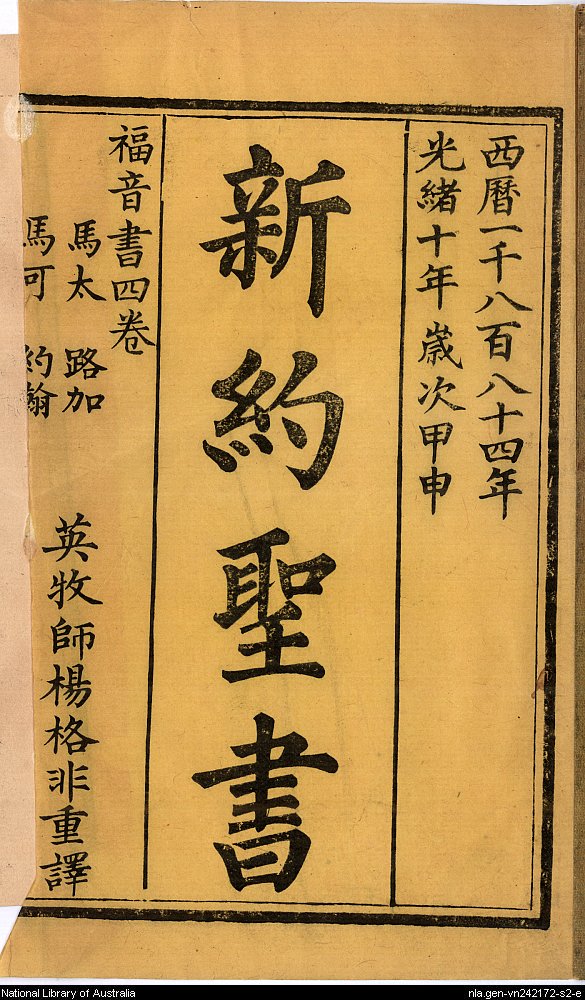 西曆一千八百八十四年
光緒十年歲次甲申
新約聖書
福音書四卷
馬太 路加
馬可 約翰
英牧師楊格非重譯
National Library of Australia
nla.gen-vn242172-s2-e